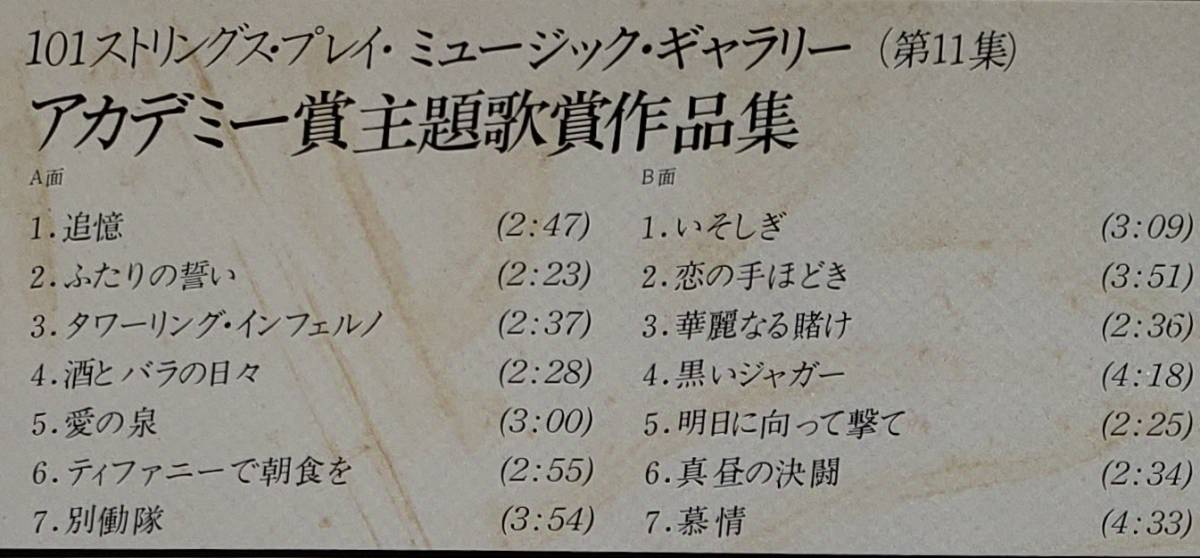 101ストリングス・プレイ・ミュージック・ギャラリー（第11集）
アカデミー賞主題歌賞作品集
A面
1.追憶 (2:47)
2.ふたりの誓い (2:23)
3.タワーリング・インフェルノ (2:37)
4.酒とバラの日々 (2:28)
5.愛の泉 (3:00)
6.ティファニーで朝食を (2:55)
7.別働隊 (3:54)
B面
1.いそしぎ (3:09)
2.恋の手ほどき (3:51)
3.華麗なる賭け (2:36)
4.黒いジャガー (4:18)
5.明日に向って撃て (2:25)
6.真昼の決闘 (2:34)
7.慕情 (4:33)